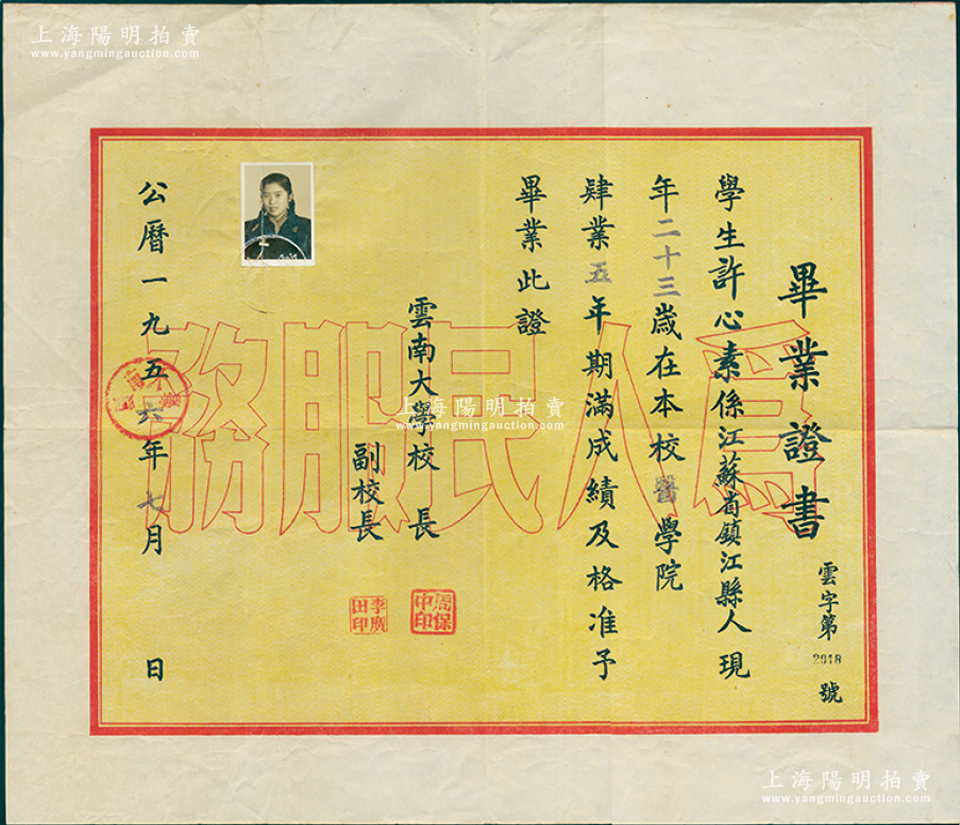 上海陽明拍賣
www.yangmingauction.com
畢業證書
雲字第2018號
學生許心素係江蘇省鎮江縣人現
年二十三歲在本校醫學院
肄業五年期滿成績及格准予
畢業此證
雲南大學校長
副校長
周保中印
李廣田印
公曆一九五六年七月 日
為人民服務
上海陽明拍賣
www.yangmingauction.com
上海陽明拍賣
www.yangmingauction.com